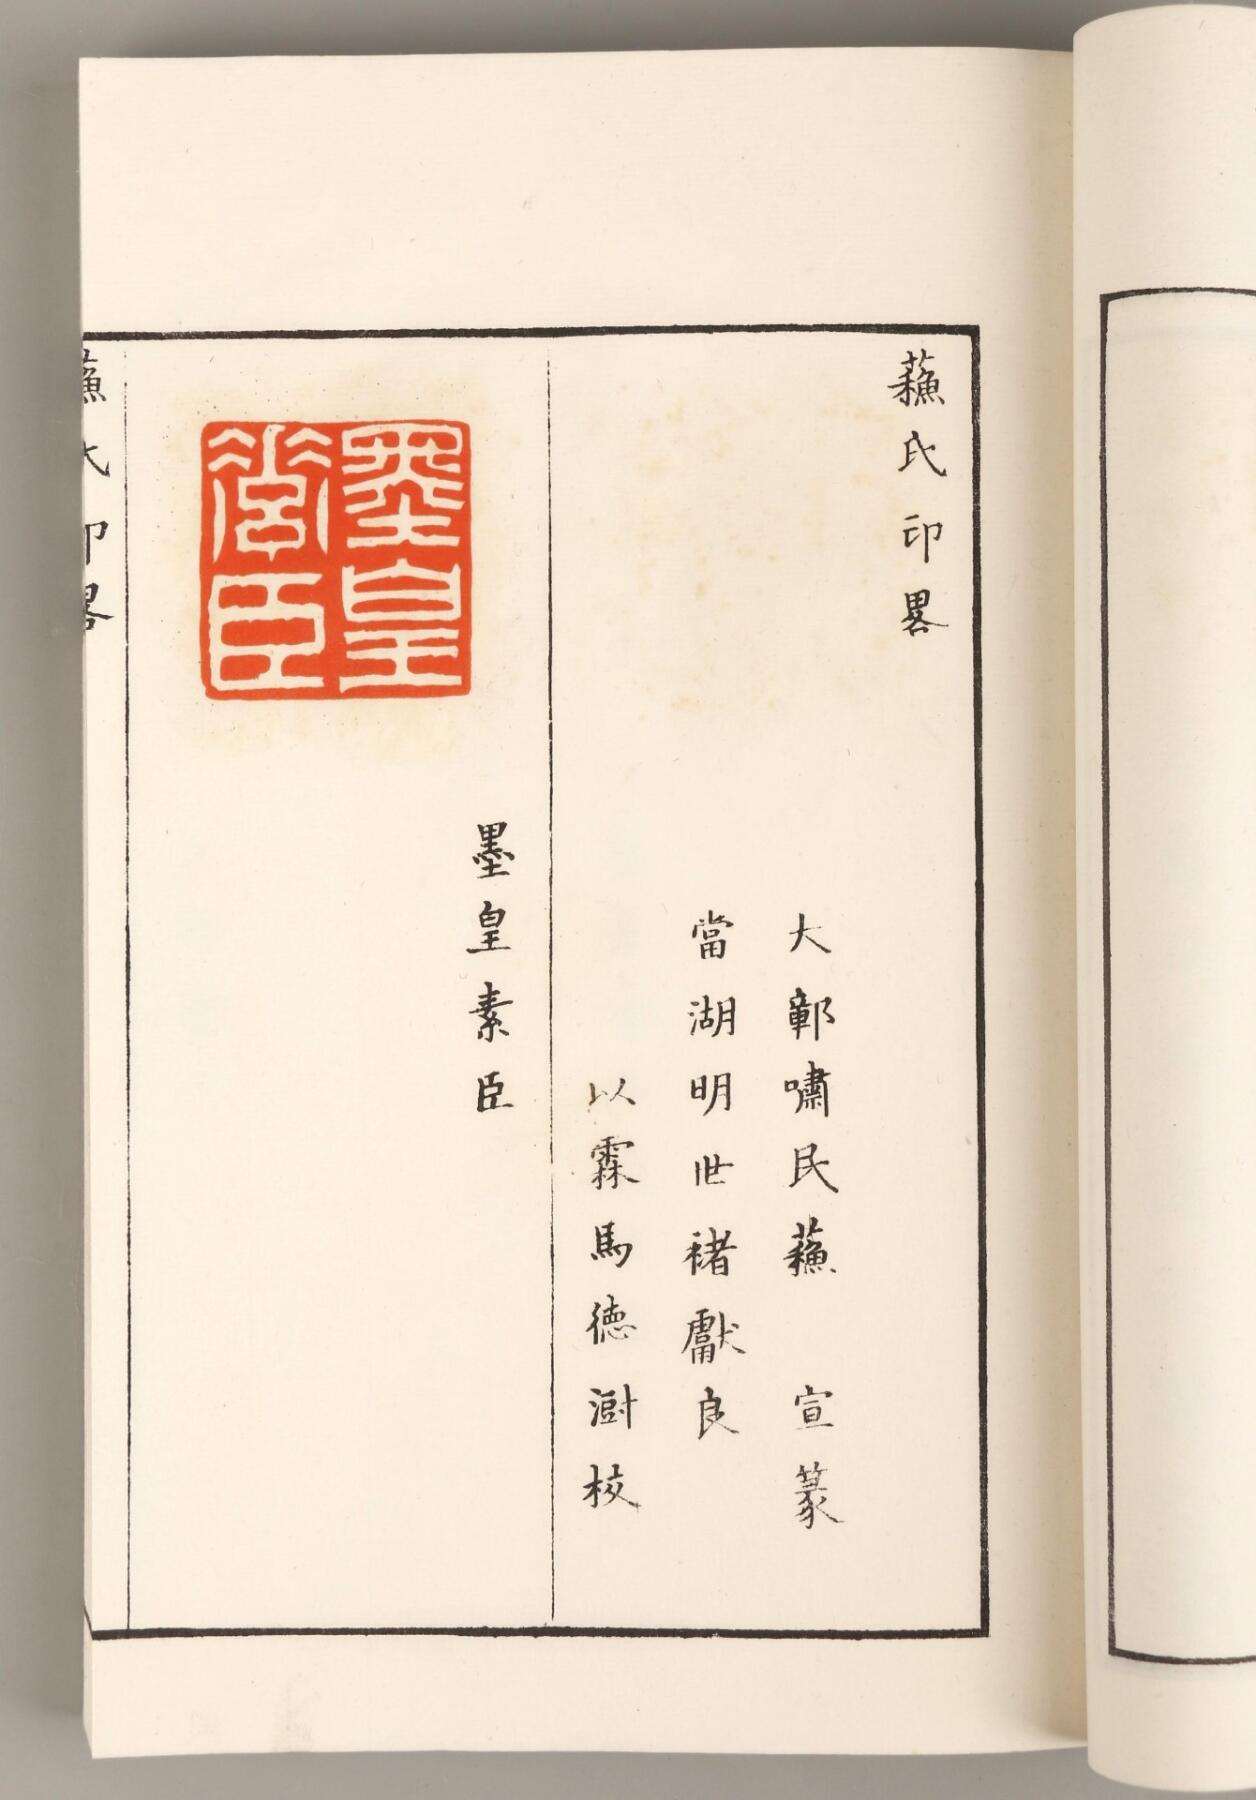 蘓氏印畧
大鄣嘯民蘓　宣篆
當湖明世褚獻良
以霖馬德澍校
墨皇
素臣
墨皇素臣
蘓氏印畧